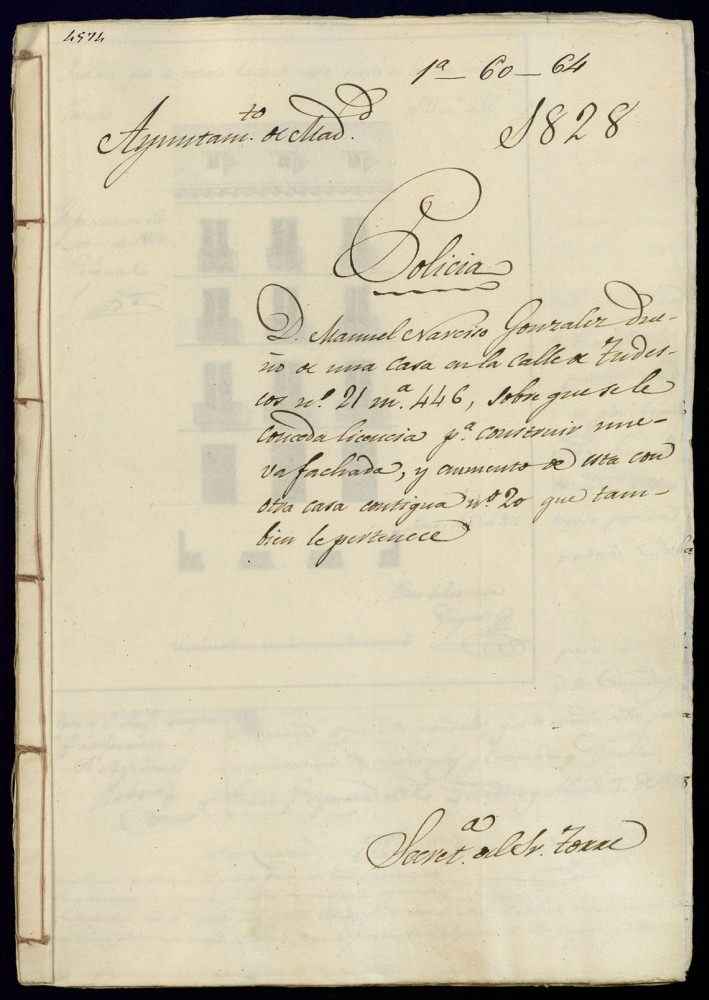 4574
1ª - 60 - 64
Ayuntam.to de Mad.d
1828
Policia
D. Manuel Narciso Gonzalez due-
ño de una casa en la calle de Tudes-
cos nº. 21 m.ª 446, sobre que se le
conceda licencia p.ª construir nue-
va fachada, y aumento de esta con
otra casa contigua nº 20 que tam-
bien le pertenece
Secret.ª del Sr. Torre